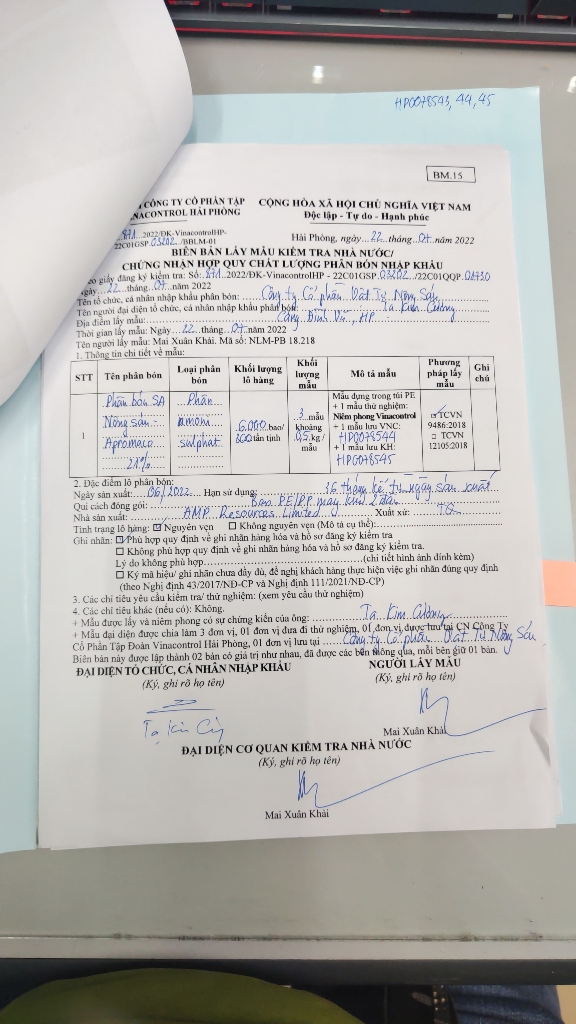 HP0078543, 44, 45
BM.15
CÔNG TY CỔ PHẦN TẬP CỘNG HÒA XÃ HỘI CHỦ NGHĨA VIỆT NAM
NACONTROL HẢI PHÒNG Độc lập - Tự do - Hạnh phúc
871.2022/ĐK-VinacontrolHP-
22C01GSP.03202/BBLM-01 Hải Phòng, ngày...22...tháng...07...năm 2022
BIÊN BẢN LẤY MẪU KIỂM TRA NHÀ NƯỚC/
CHỨNG NHẬN HỢP QUY CHẤT LƯỢNG PHÂN BÓN NHẬP KHẨU
eo giấy đăng ký kiểm tra: Số: 871.2022/ĐK-VinacontrolHP - 22C01GSP.03202/22C01QQP.02730
gày...22...tháng...07...năm 2022
Tên tổ chức, cá nhân nhập khẩu phân bón: Công ty Cổ phần Vật Tư Nông Sản
Tên người đại diện tổ chức, cá nhân nhập khẩu phân bón: Tạ Kim Cương
Địa điểm lấy mẫu: Cảng Đình Vũ, HP
Thời gian lấy mẫu: Ngày...22...tháng...07...năm 2022
Tên người lấy mẫu: Mai Xuân Khải. Mã số: NLM-PB 18.218
1. Thông tin chi tiết về mẫu:
STT Tên phân bón Loại phân bón Khối lượng lô hàng Khối lượng mẫu Mô tả mẫu Phương pháp lấy mẫu Ghi chú
1 Phân bón SA Nông sản - Apromaco 21% Phân amoni sulphat 6.000 bao/ 300 tấn tịnh 3 mẫu khoảng 0,5 kg/ mẫu
Mẫu đựng trong túi PE
+ 1 mẫu thử nghiệm:
Niêm phong Vinacontrol
+ 1 mẫu lưu VNC:
HP0078544
+ 1 mẫu lưu KH:
HP0078545
☑ TCVN 9486:2018
□ TCVN 12105:2018
2. Đặc điểm lô phân bón:
Ngày sản xuất: 06/2022 Hạn sử dụng: 36 tháng kể từ ngày sản xuất
Qui cách đóng gói: Bao PE/PP may kín 2 đầu
Nhà sản xuất: AMP Resources Limited Xuất xứ: TQ
Tình trạng lô hàng: ☑ Nguyên vẹn □ Không nguyên vẹn (Mô tả cụ thể):
Ghi nhãn: ☑ Phù hợp quy định về ghi nhãn hàng hóa và hồ sơ đăng ký kiểm tra
□ Không phù hợp quy định về ghi nhãn hàng hóa và hồ sơ đăng ký kiểm tra.
Lý do không phù hợp (chi tiết hình ảnh đính kèm)
□ Ký mã hiệu/ ghi nhãn chưa đầy đủ, đề nghị khách hàng thực hiện việc ghi nhãn đúng quy định
(theo Nghị định 43/2017/NĐ-CP và Nghị định 111/2021/NĐ-CP)
3. Các chỉ tiêu yêu cầu kiểm tra/ thử nghiệm: (xem yêu cầu thử nghiệm)
4. Các chỉ tiêu khác (nếu có): Không.
+ Mẫu được lấy và niêm phong có sự chứng kiến của ông: Tạ Kim Cương
+ Mẫu đại diện được chia làm 3 đơn vị, 01 đơn vị đưa đi thử nghiệm, 01 đơn vị được lưu tại CN Công Ty
Cổ Phần Tập Đoàn Vinacontrol Hải Phòng, 01 đơn vị lưu tại Công ty Cổ phần Vật Tư Nông Sản
Biên bản này được lập thành 02 bản có giá trị như nhau, đã được các bên thông qua, mỗi bên giữ 01 bản.
ĐẠI DIỆN TỔ CHỨC, CÁ NHÂN NHẬP KHẨU NGƯỜI LẤY MẪU
(Ký, ghi rõ họ tên) (Ký, ghi rõ họ tên)
Mai Xuân Khải
ĐẠI DIỆN CƠ QUAN KIỂM TRA NHÀ NƯỚC
(Ký, ghi rõ họ tên)
Mai Xuân Khải